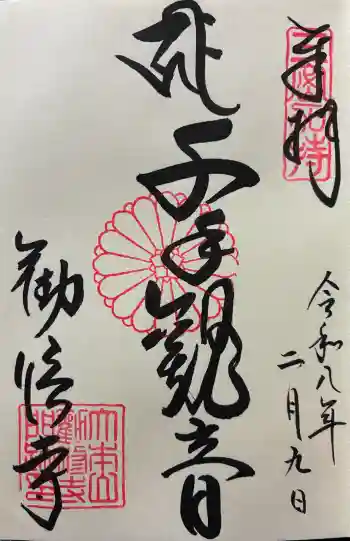 奉拝
令和八年
二月九日
千手観音
勧修寺